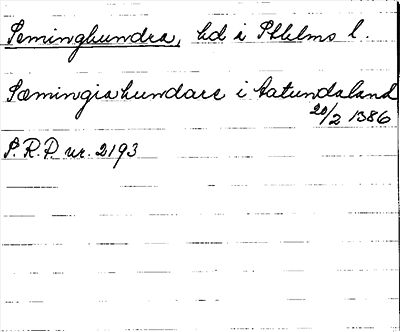 Seminghundra, hd i Sthlms l.
Sæmingiahundare i Aatundaland
20/2 1386
S.R.P. nr. 2193